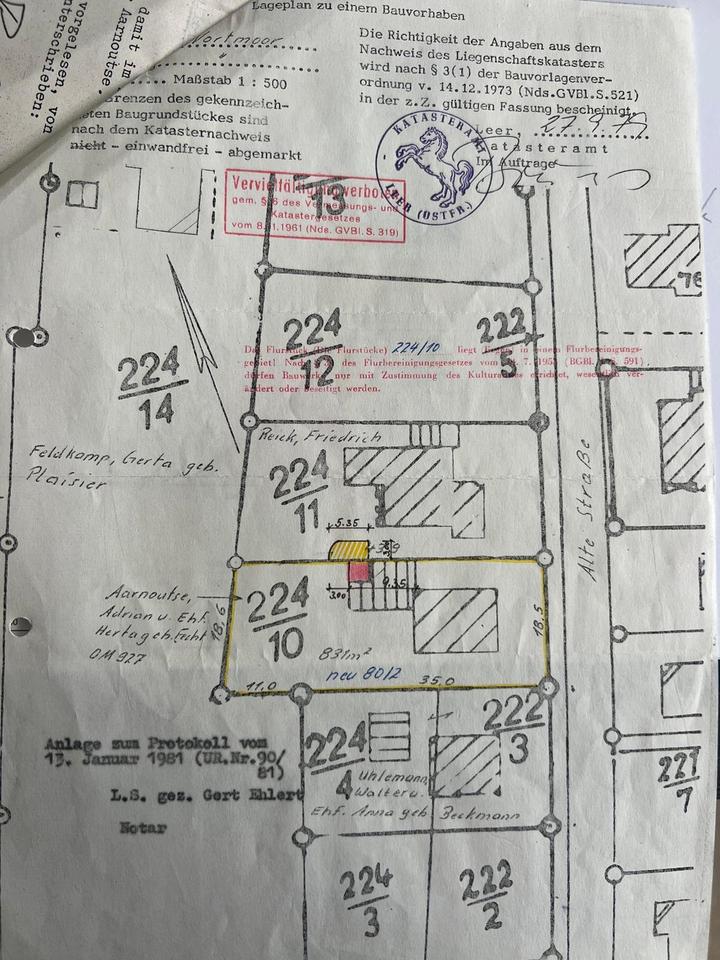 Lageplan zu einem Bauvorhaben
vorgelesen, von
damit im
Aarnoutse.
unterschrieben:
Wortmoor
Maßstab 1 : 500
Grenzen des gekennzeich-
neten Baugrundstückes sind
nach dem Katasternachweis
nicht - einwandfrei - abgemarkt
Die Richtigkeit der Angaben aus dem
Nachweis des Liegenschaftskatasters
wird nach § 3(1) der Bauvorlagenver-
ordnung v. 14.12.1973 (Nds.GVBl.S.521)
in der z.Z. gültigen Fassung bescheinigt.
Leer, 27.9.79
Katasteramt
Im Auftrage
KATASTERAMT
LEER (OSTFR.)
Vervielfältigung verboten
gem. § 6 des Vermessungs- und
Katastergesetzes
vom 8.11.1961 (Nds. GVBl. S. 319)
13
76
224
12
222
5
Das Flurstück (Die Flurstücke) 224/10 liegt (liegen) in einem Flurbereinigungs-
gebiet! Nach des Flurbereinigungsgesetzes vom 7. 1953 (BGBl. 591)
dürfen Bauwerke nur mit Zustimmung des Kulturamtes errichtet, wesentlich ver-
ändert oder beseitigt werden.
224
14
Feldkamp, Gerta geb.
Plaisier
Reick, Friedrich
224
11
Alte Straße
5.35
3.00
9.35
Aarnoutse,
Adrian u. Ehf.
Herta geb.
OM 927
18,6
224
10
831m²
neu 80/2
18,5
11,0
35,0
Anlage zum Protokoll vom
13. Januar 1981 (UR.Nr.90/
81)
L.S. gez. Gert Ehlert
Notar
224
4
222
3
Uhlemann,
Walter u.
Ehf. Anna geb. Beckmann
221
7
224
3
222
2